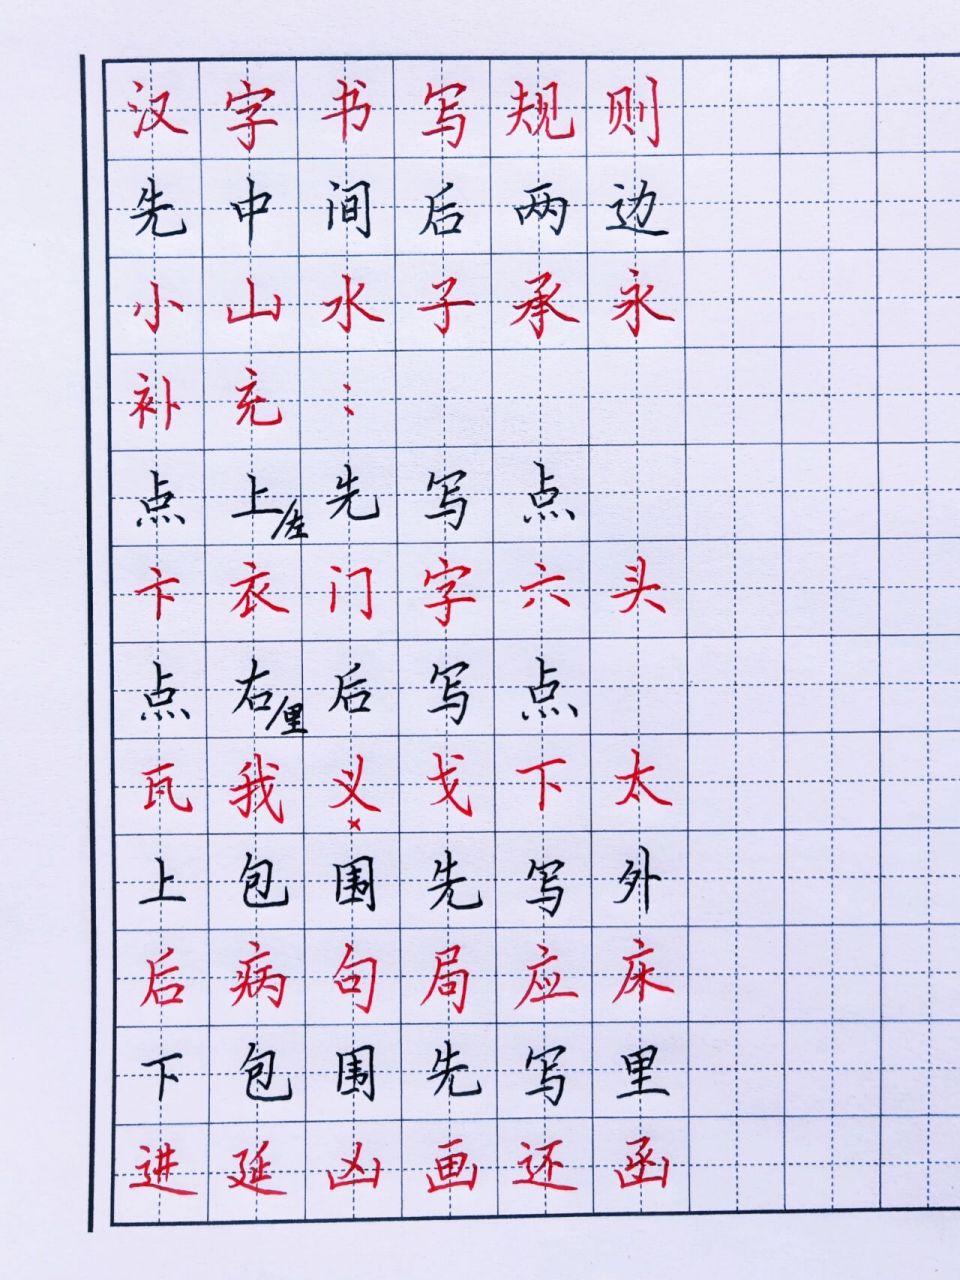 汉字书写规则
先中间后两边
小山水子承永
补充：
点上/左先写点
卞衣门字六头
点右/里后写点
瓦我义戈下太
×
上包围先写外
后病句局应床
下包围先写里
进延凶画还函